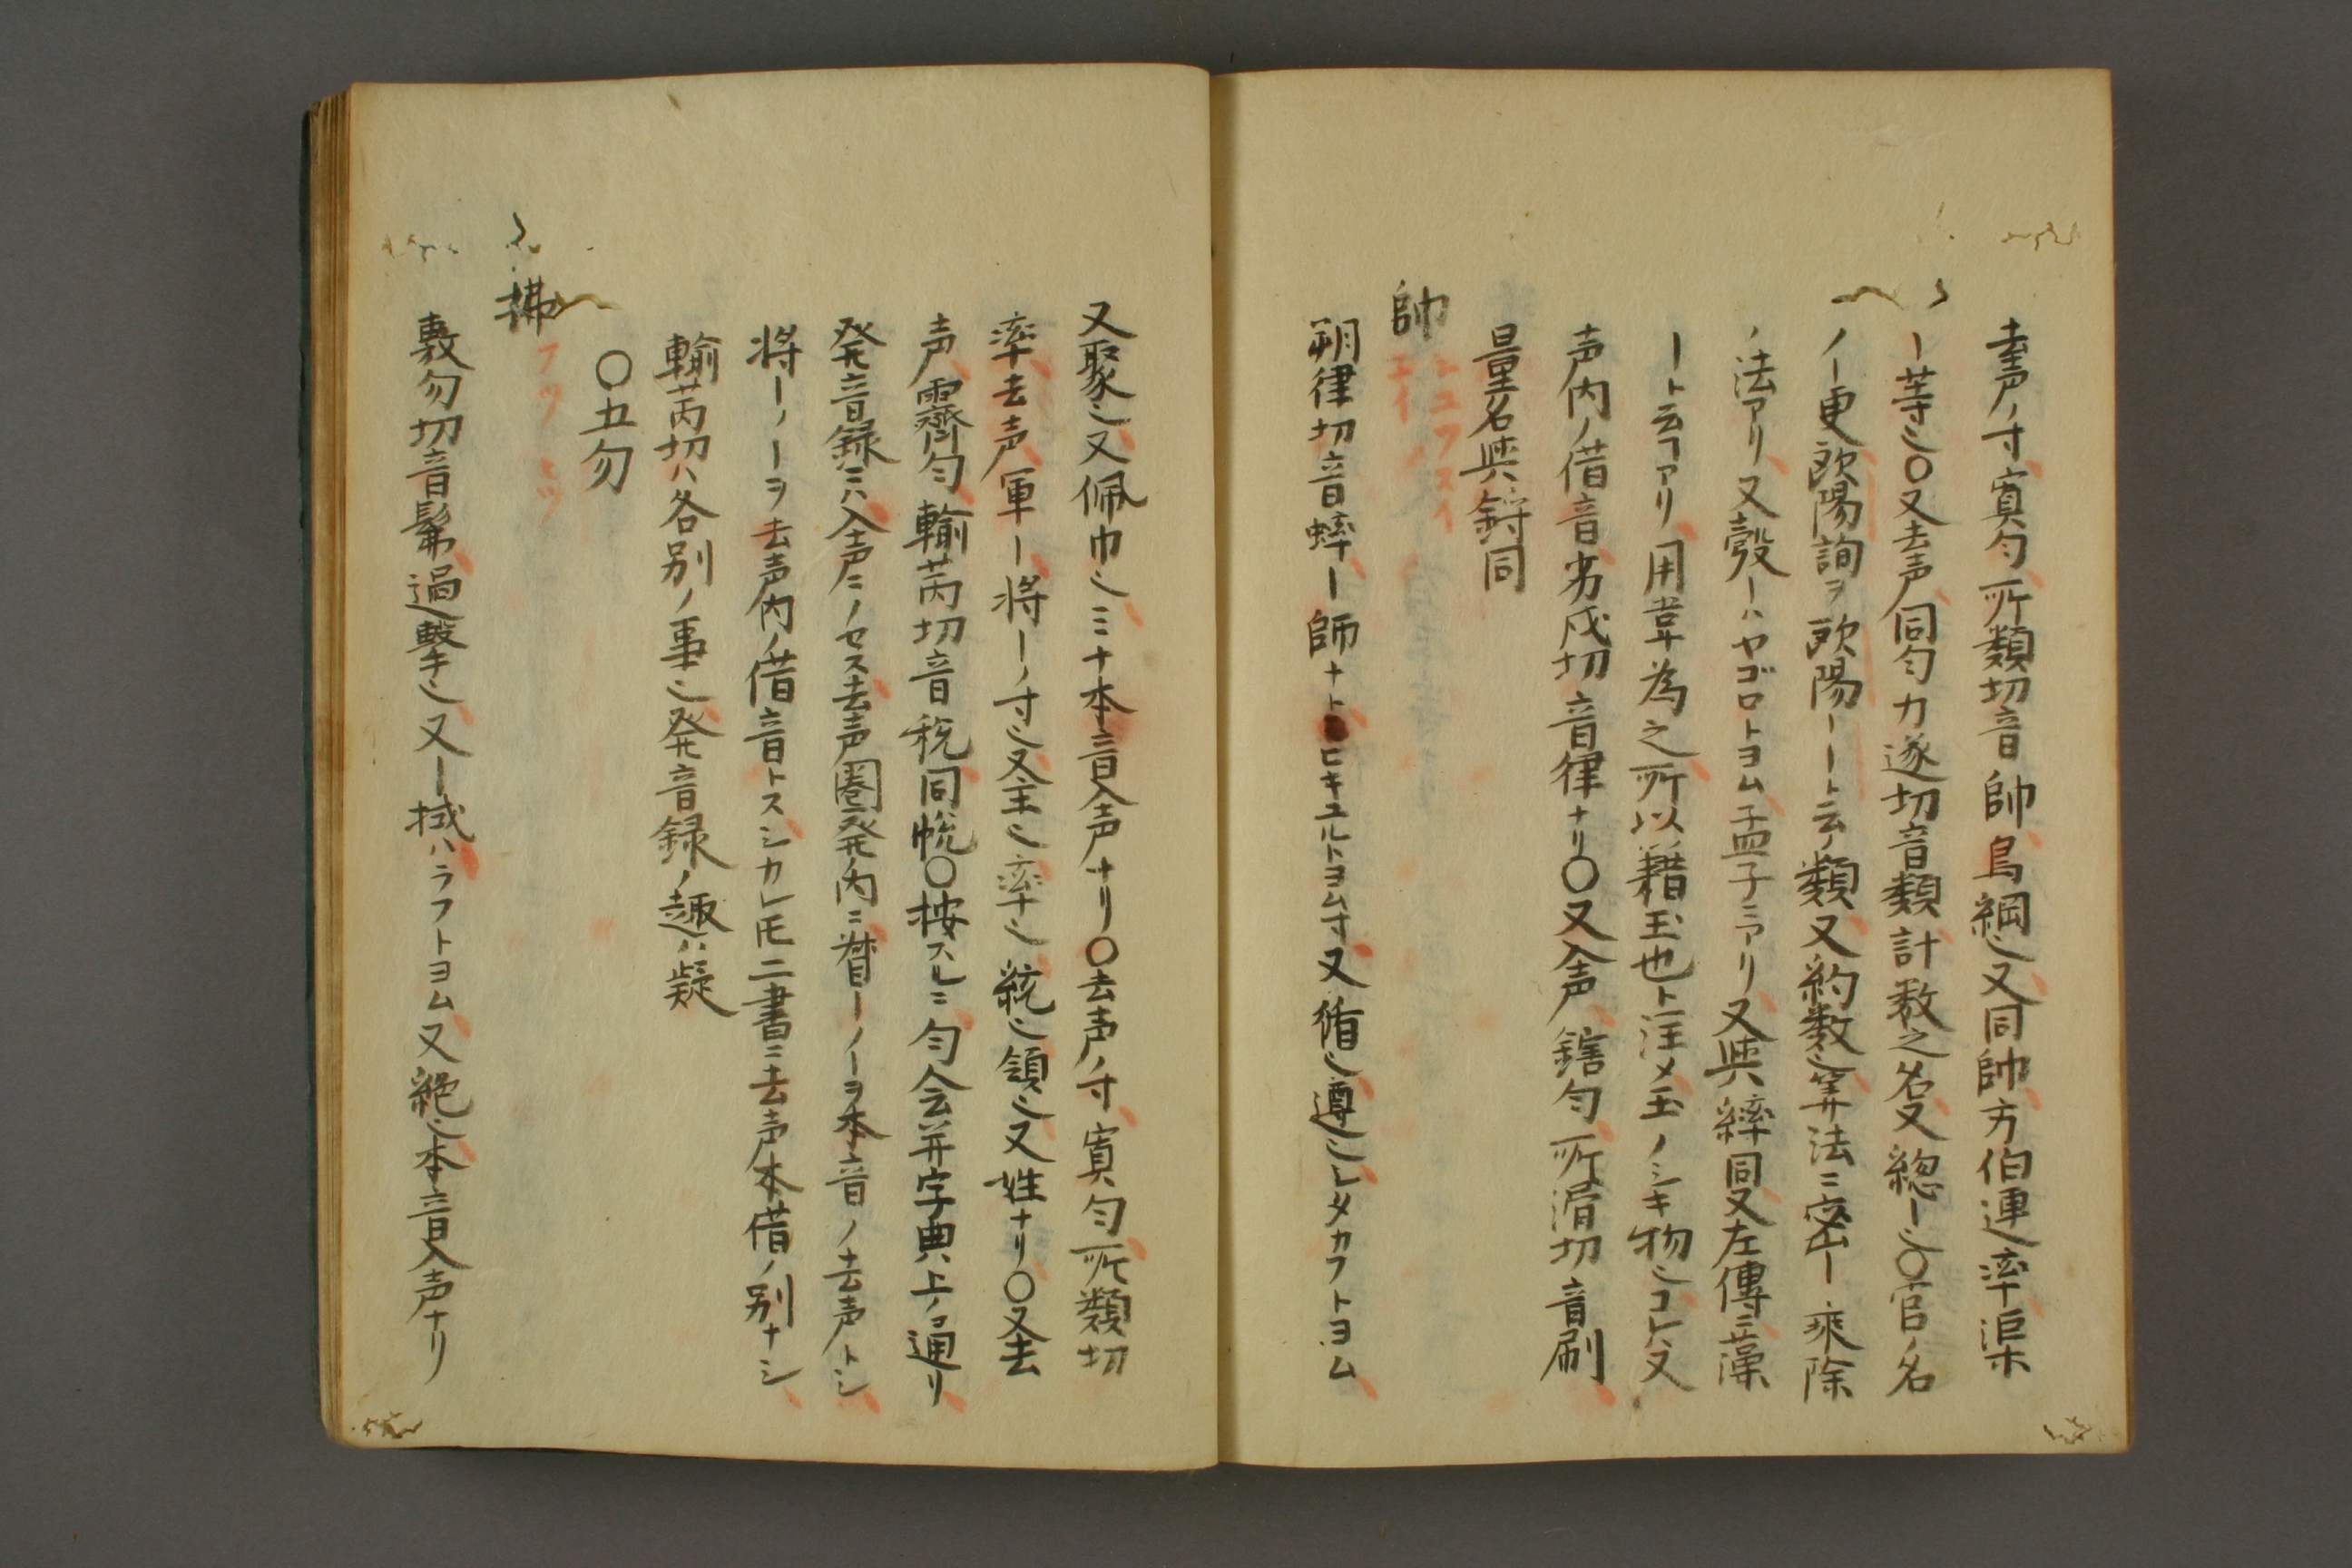 去声ノ寸寘勻所類切音帥鳥網〻又同帥方伯連率渠
ー等〻〇又去声同勻力遂切音類計数之名又総ー〻〇官ノ名
ノー更欧陽詢ヲ欧陽ーート云ノ類又約数〻筭法ニ密ー乗除
ノ法アリ又彀ーハヤゴロトヨム孟子ニアリ又與繂同又左傳ニ藻
ートヿアリ用韋為之所以藉玉也ト注メ玉ノシキ物〻コレハ又
声内ノ借音劣戌切音律ナリ〇又入声鎋勻所滑切音刷
量名與鋝同
帥
シユツスイ
朔律切音蟀ー師ナトヒキユルトヨム寸又循〻遵〻シタカフトヨム
又聚〻又佩巾〻ミナ本音入声ナリ〇去声ノ寸寘勻所類切
率去声軍ー将ーノ寸〻又主〻率〻統〻領〻又姓ナリ〇又去
声霽勻輸芮切音税同帨〇按スルニ勻会并字典ハ上ノ通リ
発音録ニハ入声ニノセス去声圏発ノ内ニ督ーノーヲ本音ノ去声トシ
将ーノーヲ去声内ノ借音トスシカレ𪜈二書ニ去声本借ノ別ナシ
輸芮切ハ各別ノ事〻発音録ノ趣ハ疑
〇五勿
拂
フツ ヒツ
敷勿切音髴過撃〻又ー拭ハラフトヨム又絶〻本音入声ナリ